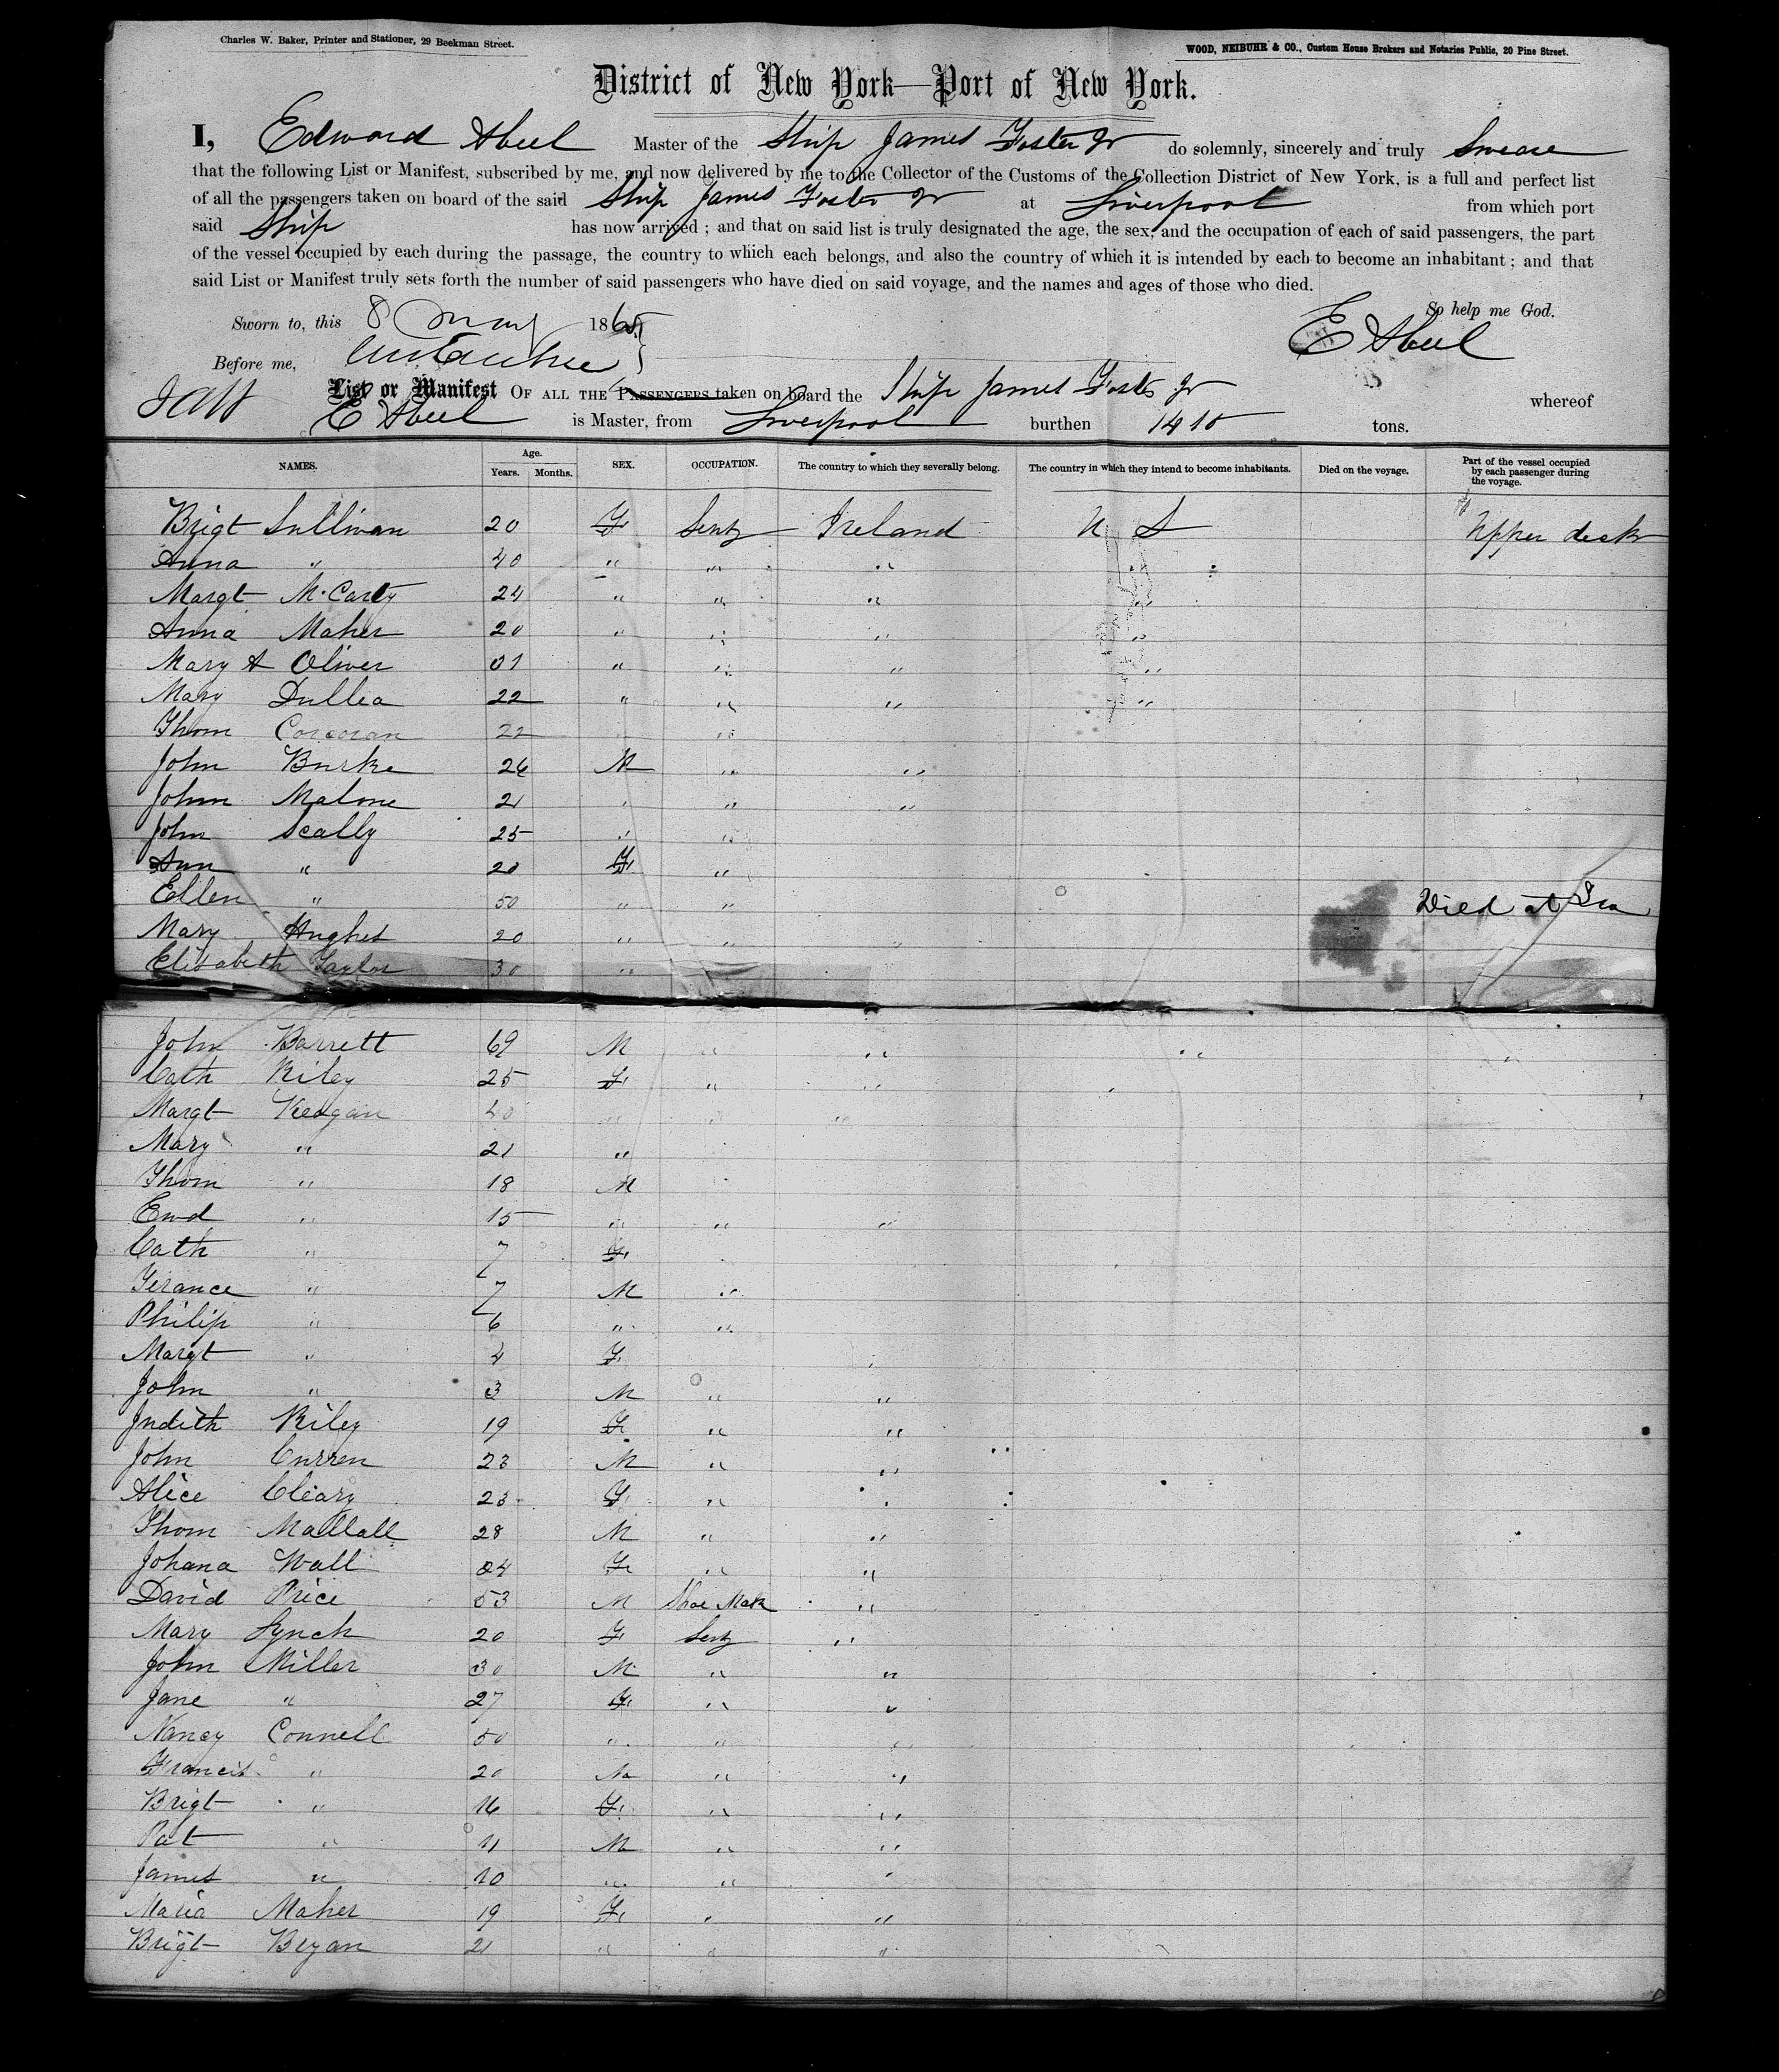 Charles W. Baker, Printer and Stationer, 29 Beekman Street.
WOOD, NEIBUHR & CO., Custom House Brokers and Notaries Public, 20 Pine Street.
District of New York—Port of New York.
I, Edward Abeel Master of the Ship James Foster Jr do solemnly, sincerely and truly Sweare
that the following List or Manifest, subscribed by me, and now delivered by me to the Collector of the Customs of the Collection District of New York, is a full and perfect list
of all the passengers taken on board of the said Ship James Foster Jr at Liverpool from which port
said Ship has now arrived; and that on said list is truly designated the age, the sex, and the occupation of each of said passengers, the part
of the vessel occupied by each during the passage, the country to which each belongs, and also the country of which it is intended by each to become an inhabitant; and that
said List or Manifest truly sets forth the number of said passengers who have died on said voyage, and the names and ages of those who died.
So help me God.
Sworn to, this 8 May 1865
E Abeel
Before me,
List or Manifest OF ALL THE PASSENGERS taken on board the Ship James Foster Jr whereof
E Abeel is Master, from Liverpool burthen 1410 tons.
NAMES. Age. Years. Months. SEX. OCCUPATION. The country to which they severally belong. The country in which they intend to become inhabitants. Died on the voyage. Part of the vessel occupied by each passenger during the voyage.
Brigt Sullivan 20 F Servt Ireland U S Upper deck
Anna " 40 " " " "
Margt McCarty 24 " " " "
Anna Maher 20 " " " "
Mary A Oliver 01 " " " "
Mary Dullea 22 " " " "
Thom Corcoran 22 "
John Burke 26 M " "
John Malone 21 " " "
John Scally 25 " "
Ann " 20 F "
Ellen " 50 " " " Died at Sea
Mary Hughes 20 " " "
Elisabeth Taylor 30 "
John Barrett 69 M " " "
Cath Riley 25 F " "
Margt Keogan 40 "
Mary " 21 "
Thom " 18 M
Ewd " 15 " " "
Cath " 7 F
Terance " 7 M "
Philip " 6 " "
Margt " 4 F
John " 3 M " "
Judith Riley 19 F " "
John Curren 23 M " "
Alice Cleary 23 F " "
Thom Mallall 28 M " "
Johana Wall 24 F " "
David Price 53 M Shoe Makr "
Mary Lynch 20 F Servt "
John Miller 30 M " "
Jane " 27 F " "
Nancy Connell 50 " " "
Francis " 20 M " "
Brigt " 16 F " "
Pat " 11 M " "
James " 10 " " "
Maria Maher 19 F " "
Brigt Bryan 21 " " "